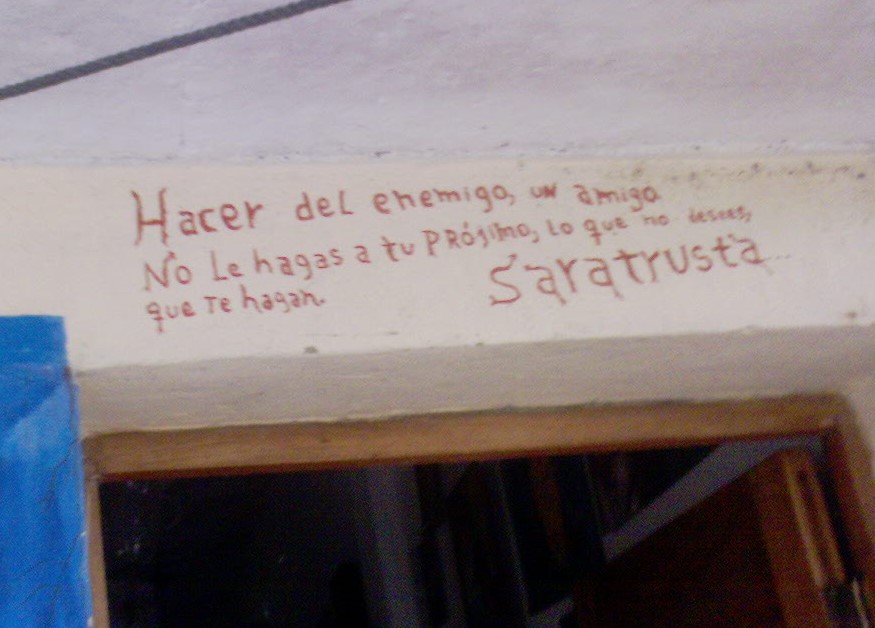 Hacer del enemigo, un amigo
No Le hagas a tu PRÓJimo, Lo que no desees,
que Te hagan.
Saratrusta...